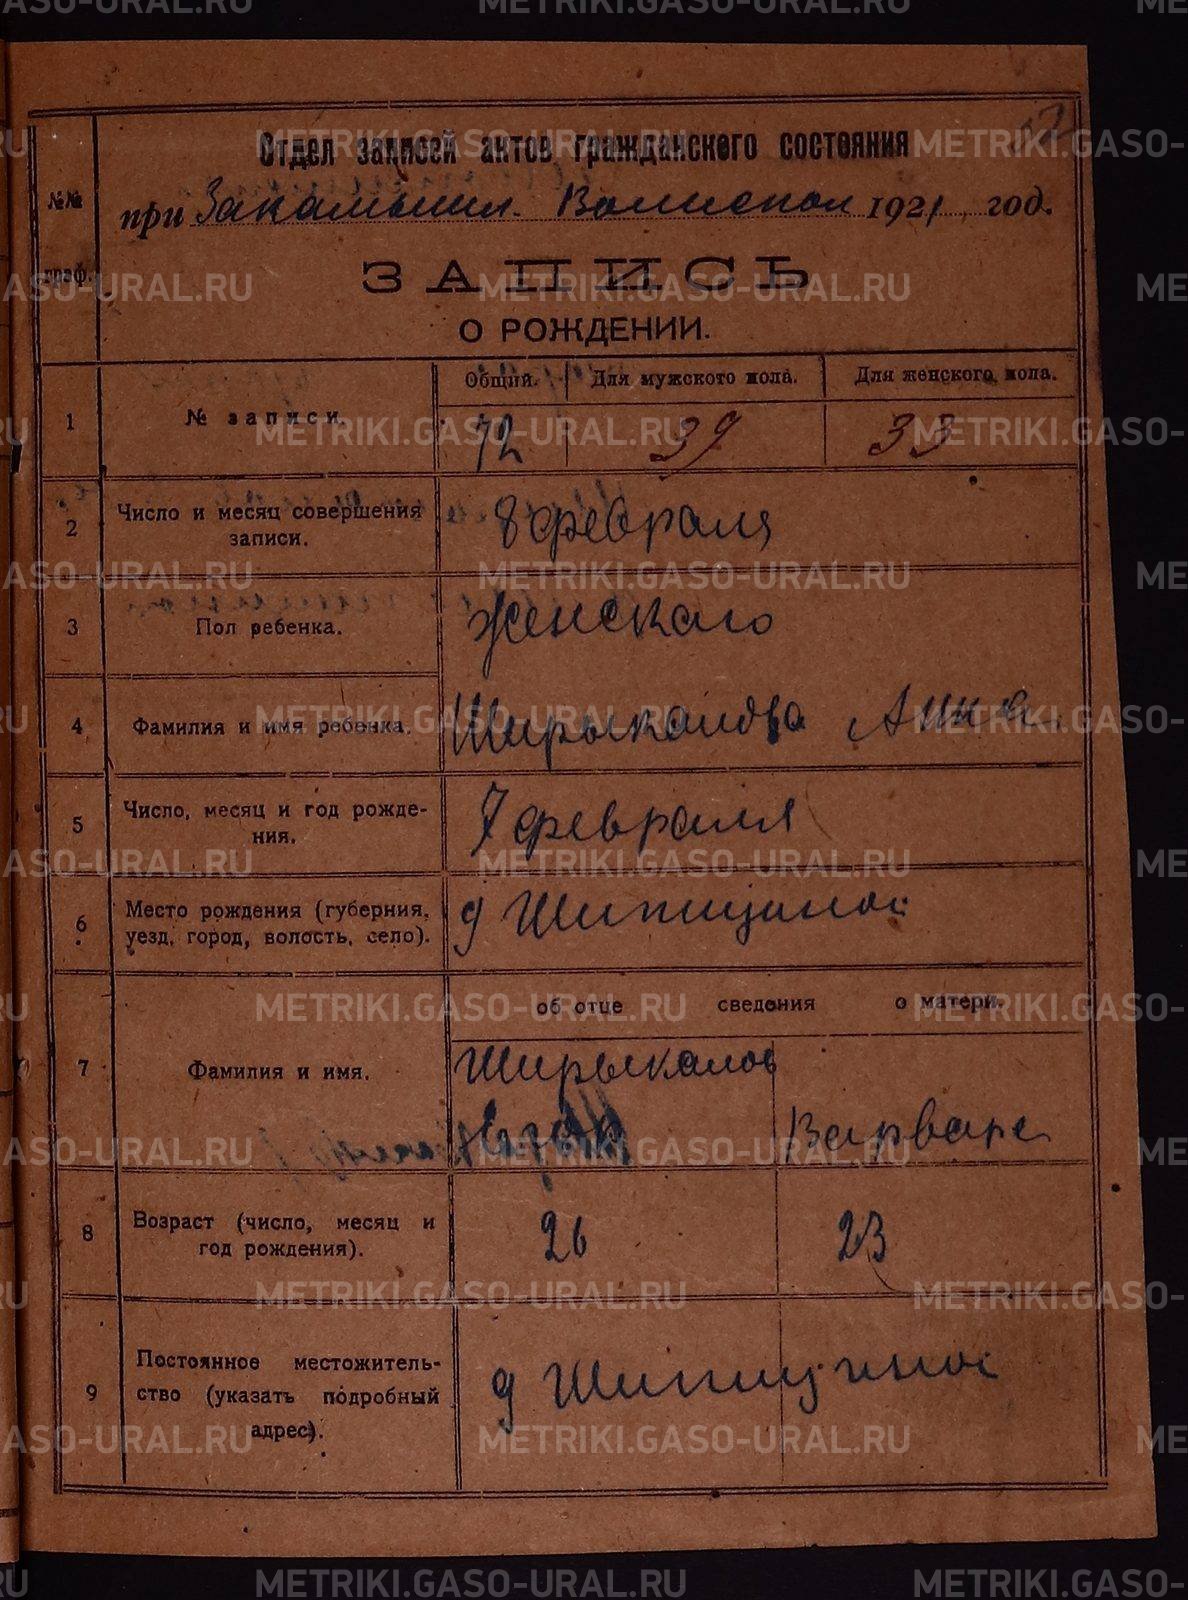 Отдел записей актов гражданского состояния
при Закамышл. Волисполк 1921 год.
№№
граф.
ЗАПИСЬ
О РОЖДЕНИИ.
1 № записи. Общий. Для мужского пола. Для женского пола.
72 39 33
2 Число и месяц совершения записи. 8 февраля
3 Пол ребенка. Женскаго
4 Фамилия и имя ребенка. Ширыкалова Анна
5 Число, месяц и год рожде-
ния. 7 февраля
6 Место рождения (губерния,
уезд, город, волость, село). д Шипицина
об отце сведения о матери.
7 Фамилия и имя. Ширыкалов
Варвара
8 Возраст (число, месяц и
год рождения). 26 23
9 Постоянное местожитель-
ство (указать подробный
адрес). д Шипицина
METRIKI.GASO-URAL.RU